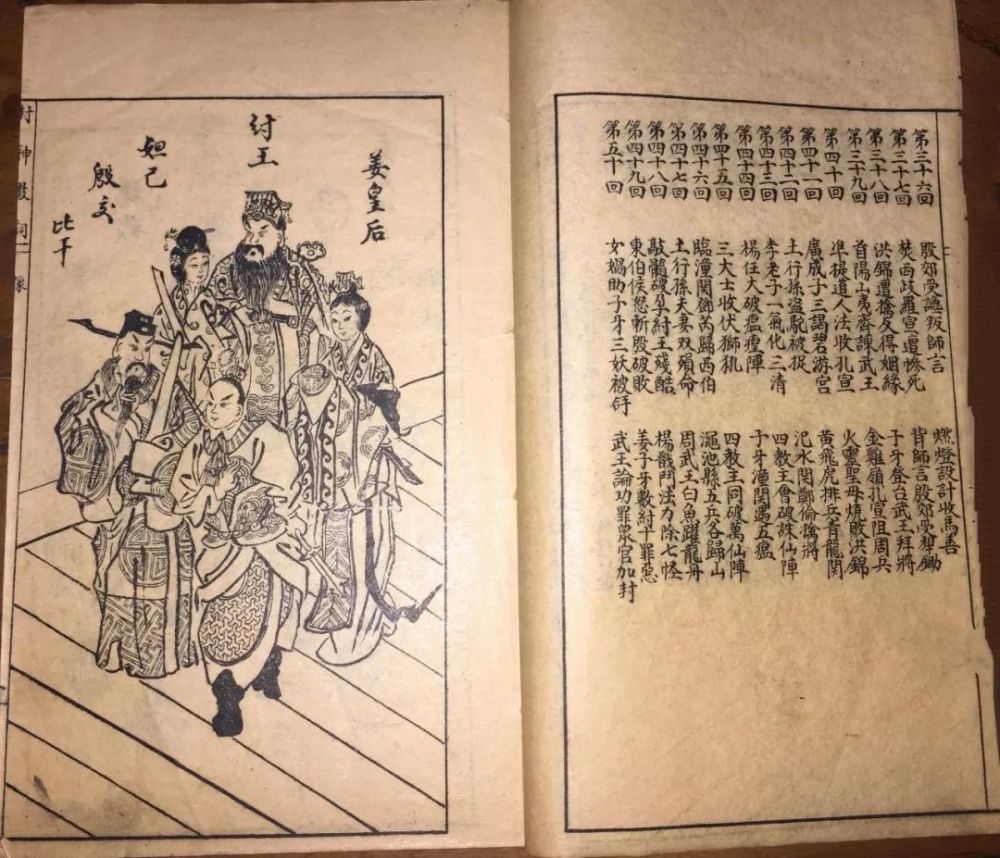 第三十六回 殷郊受譴叛師言 燃燈設計收馬善
第三十七回 焚西歧羅宣遭慘死 背師言殷郊受犁鋤
第三十八回 洪錦遭擒反得姻緣 子牙登台武王拜將
第三十九回 首陽山夷齊諫武王 金雞嶺孔宣阻周兵
第四十回 準提道人法收孔宣 火靈聖母燒敗洪錦
第四十一回 廣成子三謁碧游宮 黃飛虎排兵青龍関
第四十二回 土行孫盜駝被捉 汜水関鄭倫擒將
第四十三回 李老子一氣化三清 四教王會破誅仙陣
第四十四回 楊任大破瘟𤶘陣 子牙潼関遇五瘟
第四十五回 三大士收伏獅犼 四教王同破萬仙陣
第四十六回 臨潼関鄧芮歸西伯 澠池縣五兵各歸山
第四十七回 土行孫夫妻双殞命 周武王白魚躍龍舟
第四十八回 敲髓破孕紂王殘酷 楊戩鬥法力除七怪
第四十九回 東伯侯怒斬殷破敗 姜子牙數紂十罪惡
第五十回 女媧助子牙三妖被俘 武王論功罪衆官加封
姜皇后
紂王
妲己
殷交
比干
封神 詞 像